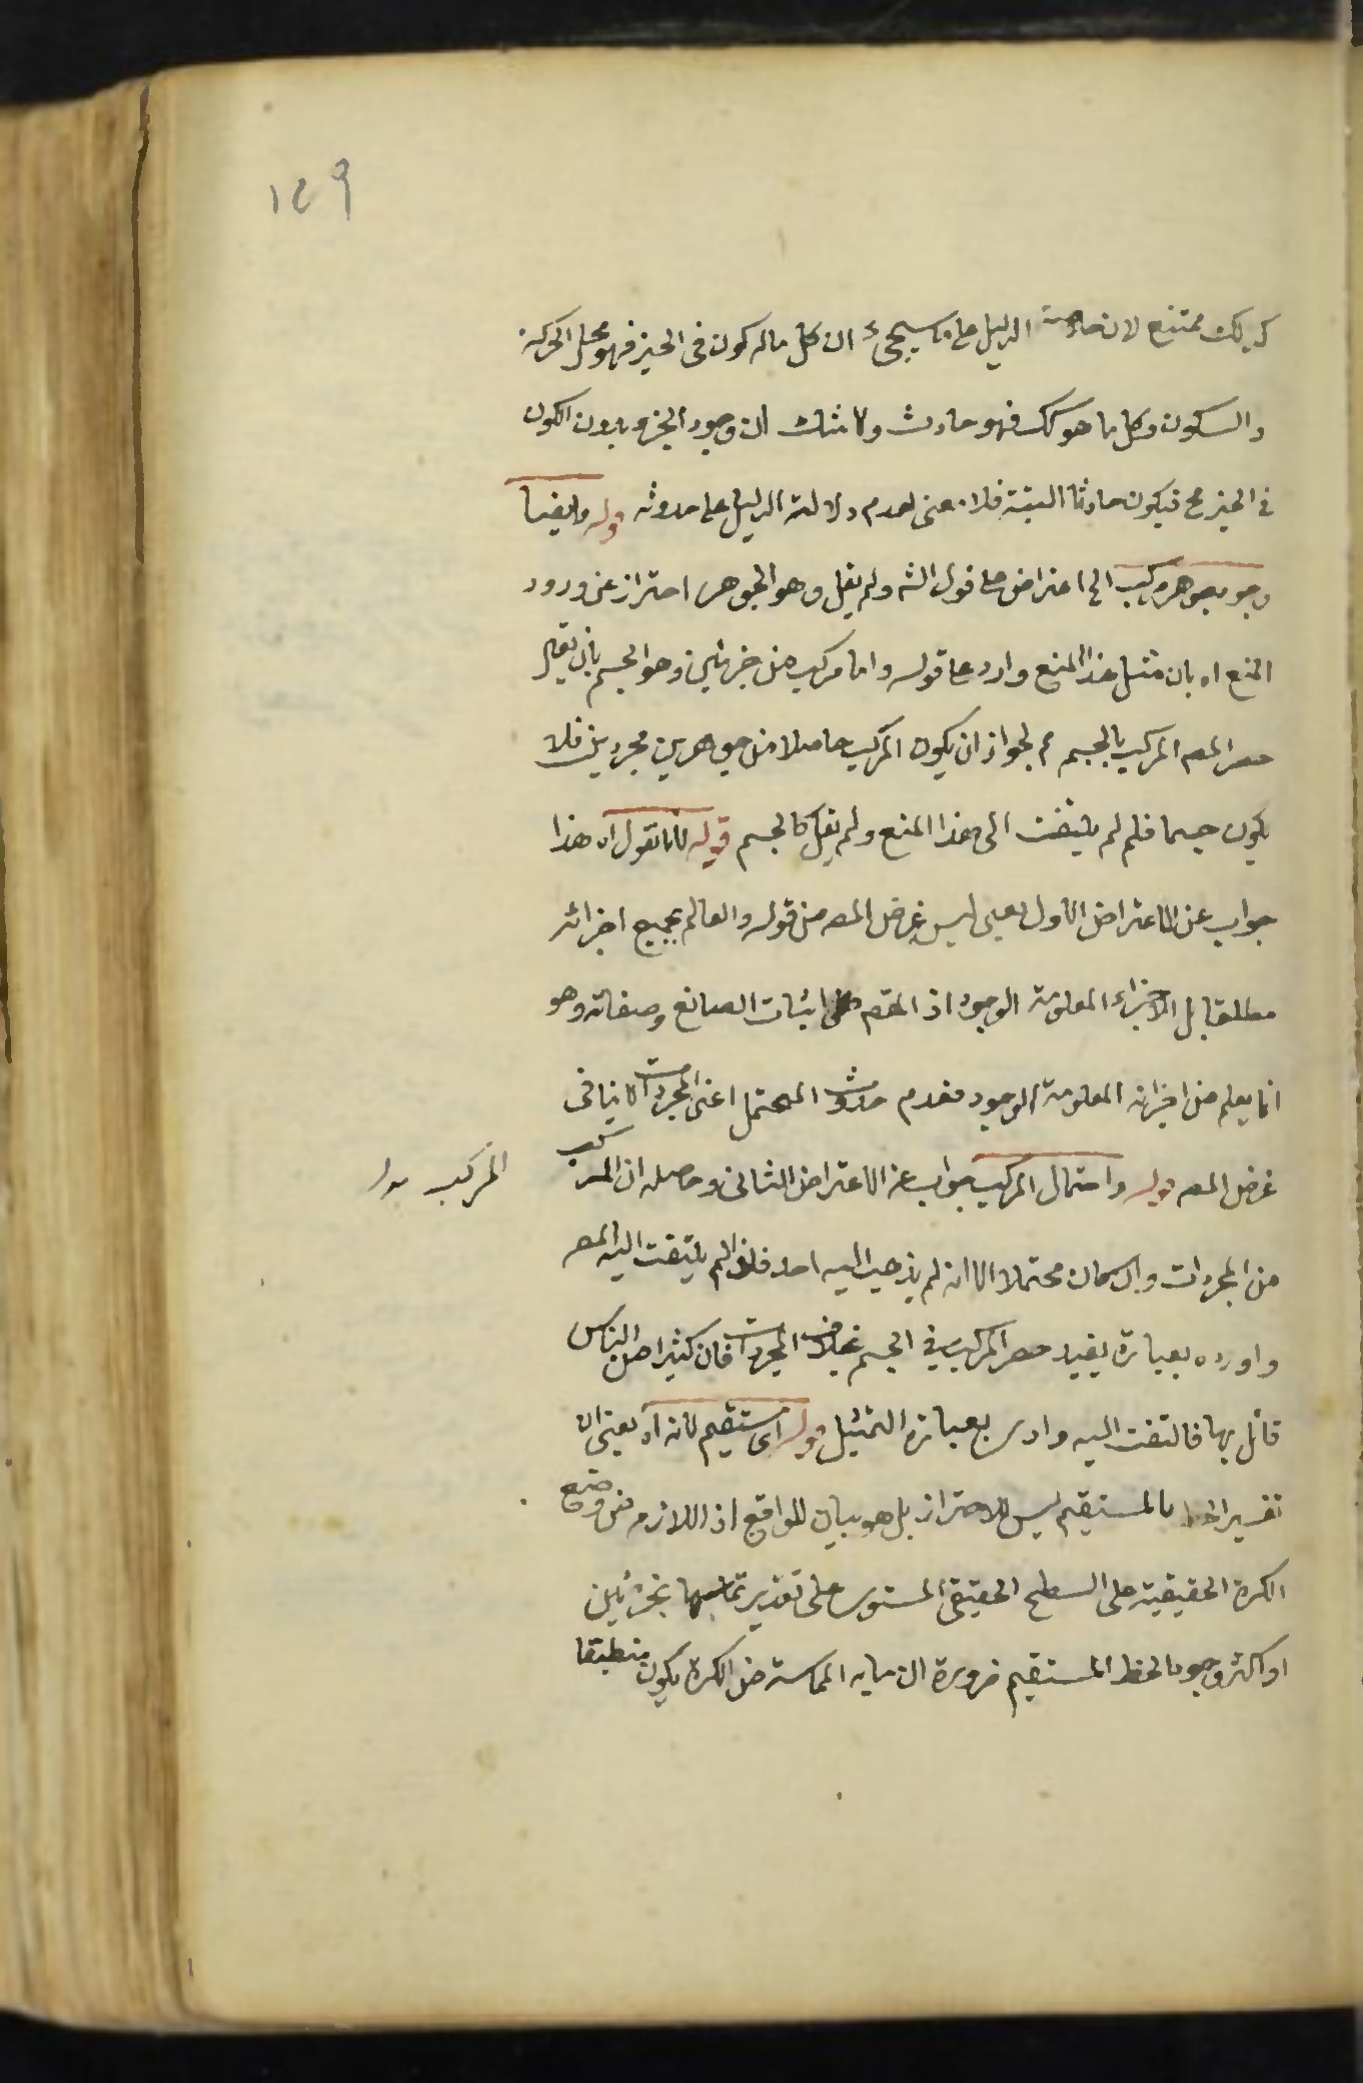 ١٤٩
كذلك ممتنع لان خلاصة الدليل على ما سيجئ ان كل ماله كون فى الحيز فهو محل الحركة
والسكون وكل ما هو كك فهو حادث ولا شك ان وجود الجزء بدون الكون
فى الحيز مح فيكون حادثا البتة فلا معنى لعدم دلالة الدليل على حدوثه قوله وايضا
وجود جوهر مركب الخ اعتراض على قول الشه ولم يقل وهو الجوهر احترازا عن ورود
المنع اه بان مثل هذا المنع وارد على قوله واما مركب من جزئين وهو الجسم بان يقال
حصر المصه المركب بالجسم مم لجواز ان يكون المركب حاصلا من جوهرين مجردين فلا
يكون جسما فلم لم يلتفت الى هذا المنع ولم يقل كالجسم قوله لانا نقول اه هذا
جواب عن الاعتراض الاول يعنى ليس غرض المصه من قوله والعالم بجميع اجزائه
مطلقا بل الاجزاء المعلومة الوجود اذ المقصه اثبات الصانع وصفاته وهو
انما يعلم من اجزائه المعلومة الوجود فعدم حدوث المحتمل اعنى المجردات لا ينافى
غرض المصه قوله واحتمال المركب جواب عن الاعتراض الثانى وحاصله ان المركب
المركب
من المجردات وان كان محتملا الا انه لم يذهب اليه احد فلذا لم يلتفت اليه المصه
واورده بعبارة يفيد حصر المركب فى الجسم بخلاف المجردات فان كثيرا من الناس
قائل بها فالتفت اليه واورد بعبارة التمثيل قوله اى مستقيم لانه اه يعنى ان
تفسير الخط بالمستقيم ليس للاحتراز بل هو بيان للواقع اذ اللازم من وضع
الكرة الحقيقية على السطح الحقيقى المستوى على تقدير تماسها بجزئين
او اكثر وجود الخط المستقيم ضرورة ان ما به المماسة من الكرة يكون منطبقا